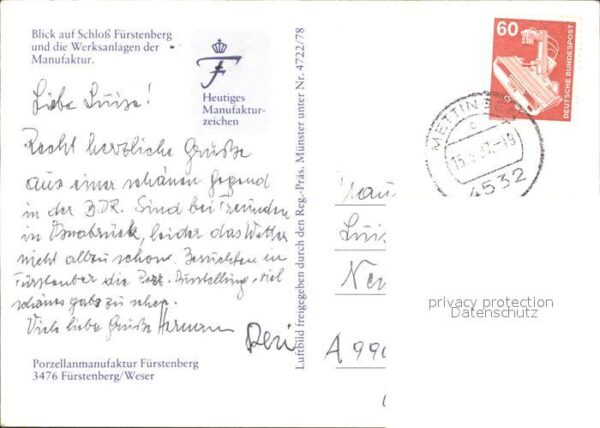 Blick auf Schloß Fürstenberg
und die Werksanlagen der
Manufaktur.
F
Heutiges
Manufaktur-
zeichen
Liebe Luise!
Recht herzliche Grüße
aus einer schönen Gegend
in der B.D.R. Sind bei Freunden
in Osnabrück, leider das Wetter
nicht allzu schön. Besuchten in
Fürstenber die Porz. Ausstellung, viel
schönes gabs zu sehen.
Viele liebe Grüße Hermann
Porzellanmanufaktur Fürstenberg
3476 Fürstenberg/Weser
Luftbild freigegeben durch den Reg.-Präs. Münster unter Nr. 4722/78
60
DEUTSCHE BUNDESPOST
METTINGEN
c
4532
Luis
A 990
privacy protection
Datenschutz